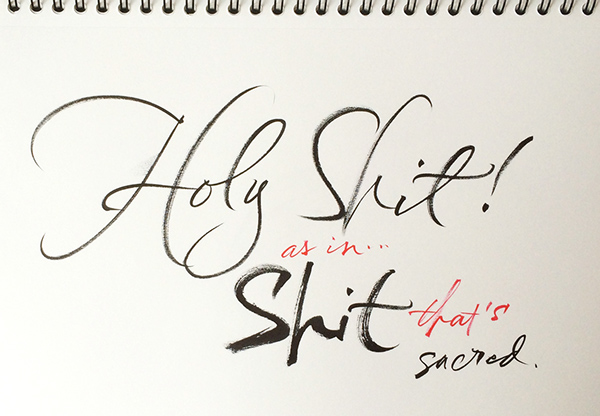 Holy Shit!
as in...
Shit that's
sacred.